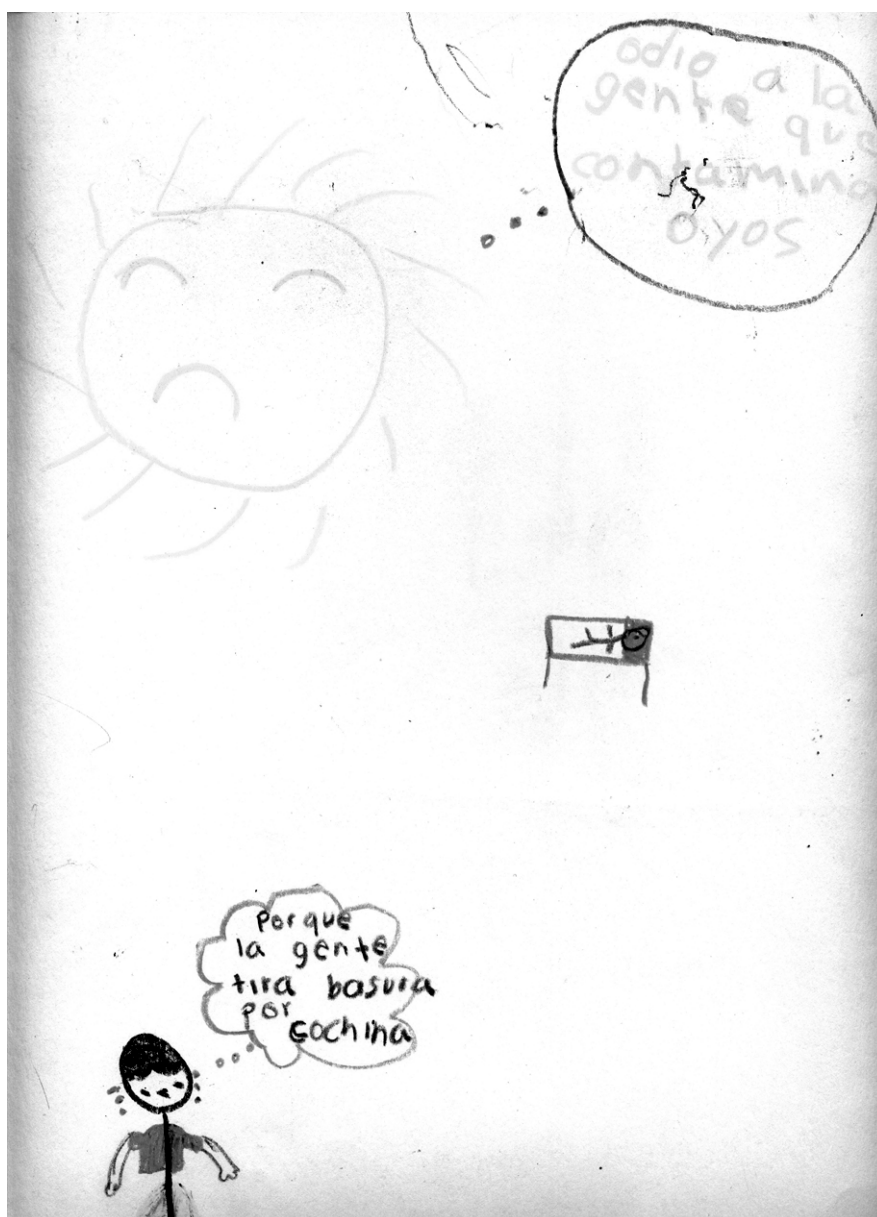 odio a la
gente que
contamina
oyos
Porque
la gente
tira basura
por
cochina